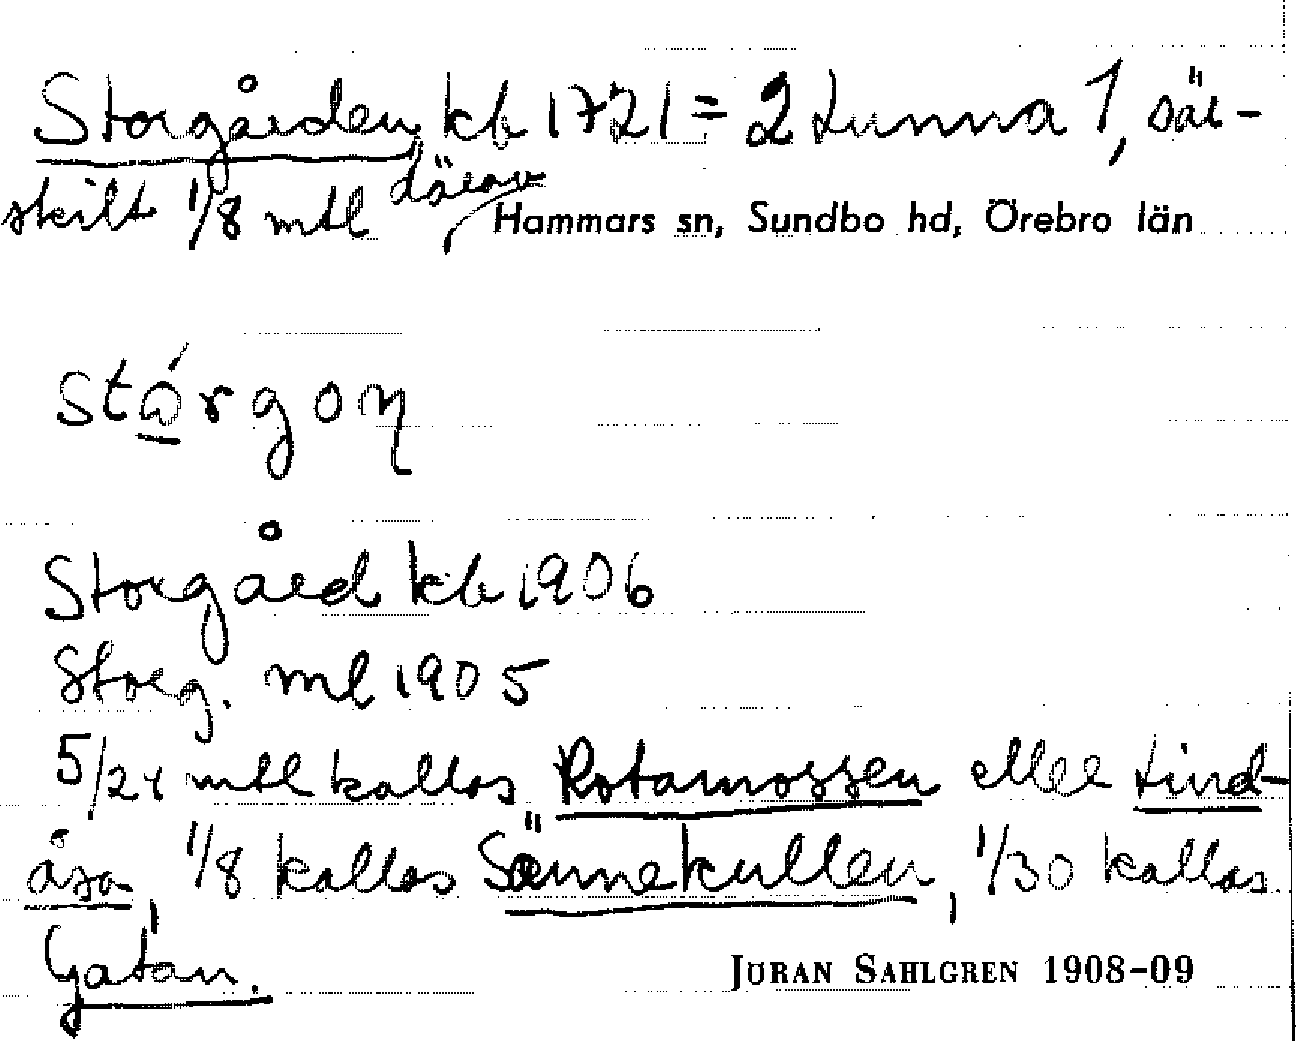 Storgården kb 1721 = 2 Lunna 1, sär-
skilt 1/8 mtl därav
Hammars sn, Sundbo hd, Örebro län
stɷ́rgoɳ
Storgård kb 1906
Storg. ml 1905
5/24 mtl kallas Rotamossen eller Lind-
åsa, 1/8 kallas Sännekullen, 1/30 kallas
Gatan.
JÖRAN SAHLGREN 1908-09